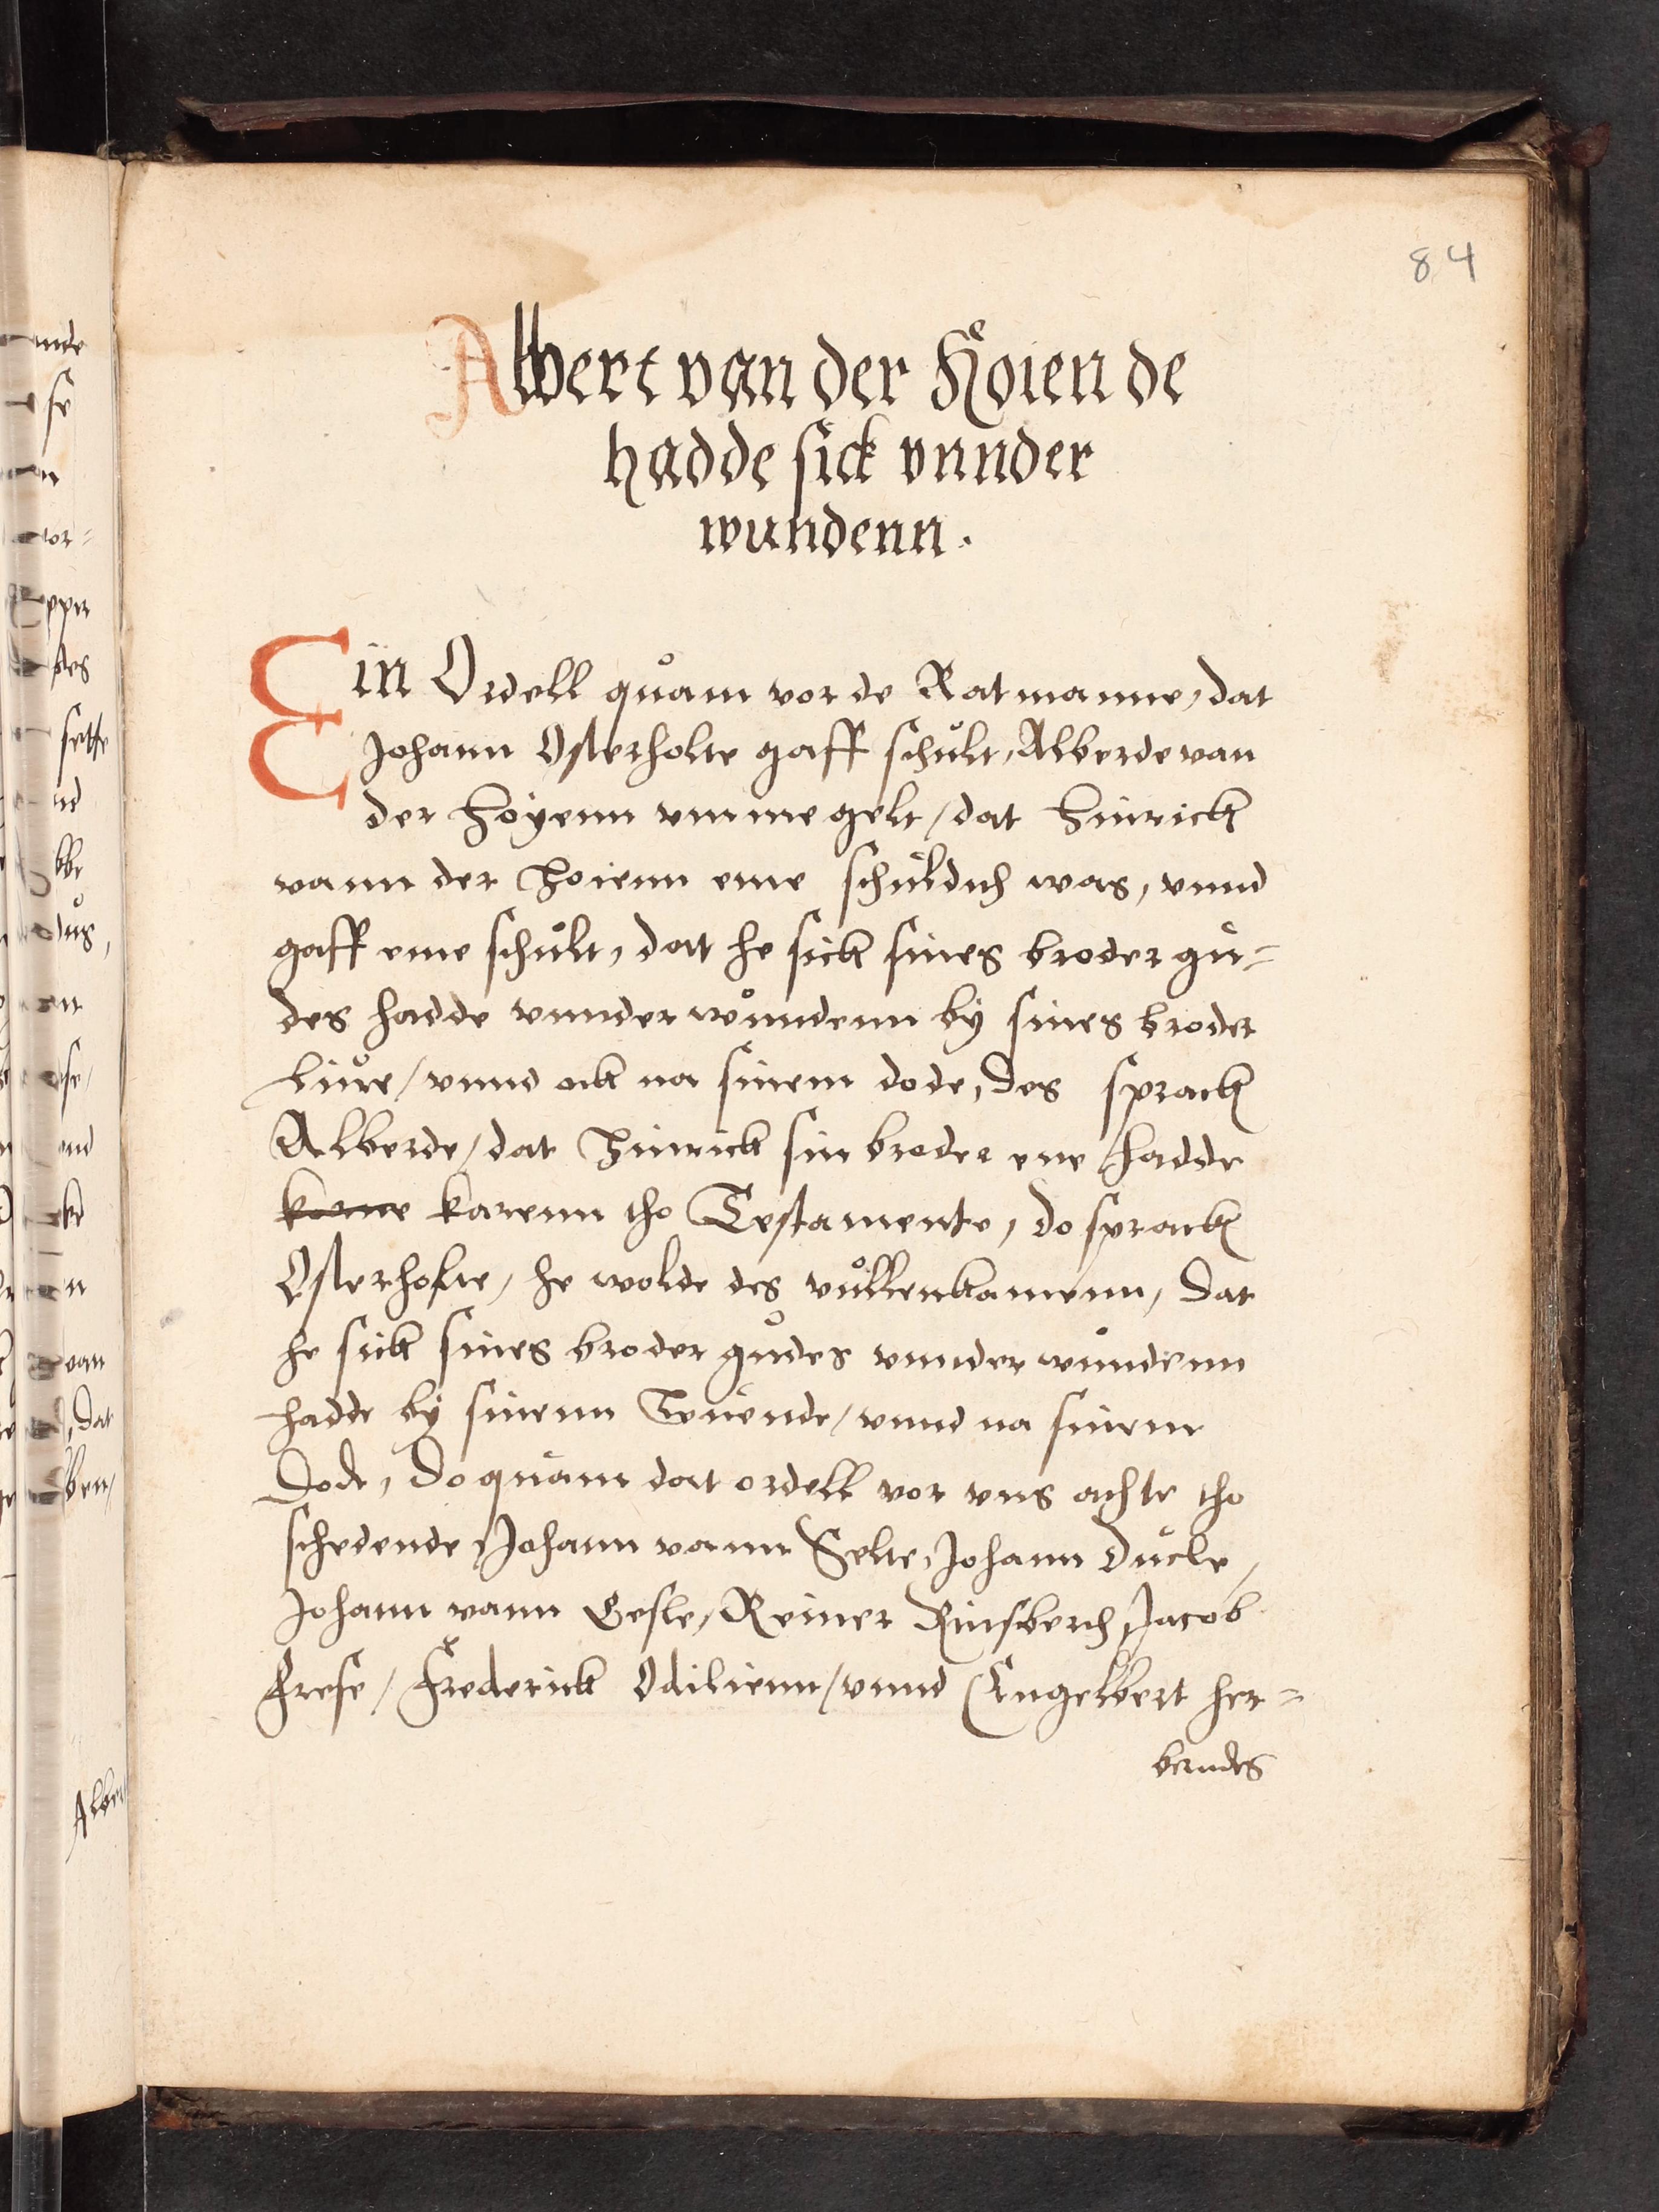 84
Albert van der Hoien de
hadde sick vnnder
wundenn.
Ein Ordell quam vor de Ratmanne, dat
Johann Osterholte gaff schult, Alberde van
der Hoyenn vmme gelt, dat Hinrick
vann der Hoienn eme schuldich was, vnnd
gaff eme schult, dat he sick sines broder gu=
des hadde vnnder wundenn by sines broder
liue, vnnd ock na sinem dode, des sprack
Alberde, dat Hinrick sin broder ene hadde
korne karenn tho Testamente, do sprack
Osterholte, he wolde des vullenkamenn, dat
he sick sines broder gudes vnnder wundenn
hadde by sinenn leuende, vnnd na sinem
dode, do quam dat ordell vor vns achte tho
schedende, Johann vann Selte, Johann Ducle,
Johann vann Gesle, Reiner Rinsberch, Jacob
Frese, Frederick Odilienn, vnnd Engelbert her=
berndes